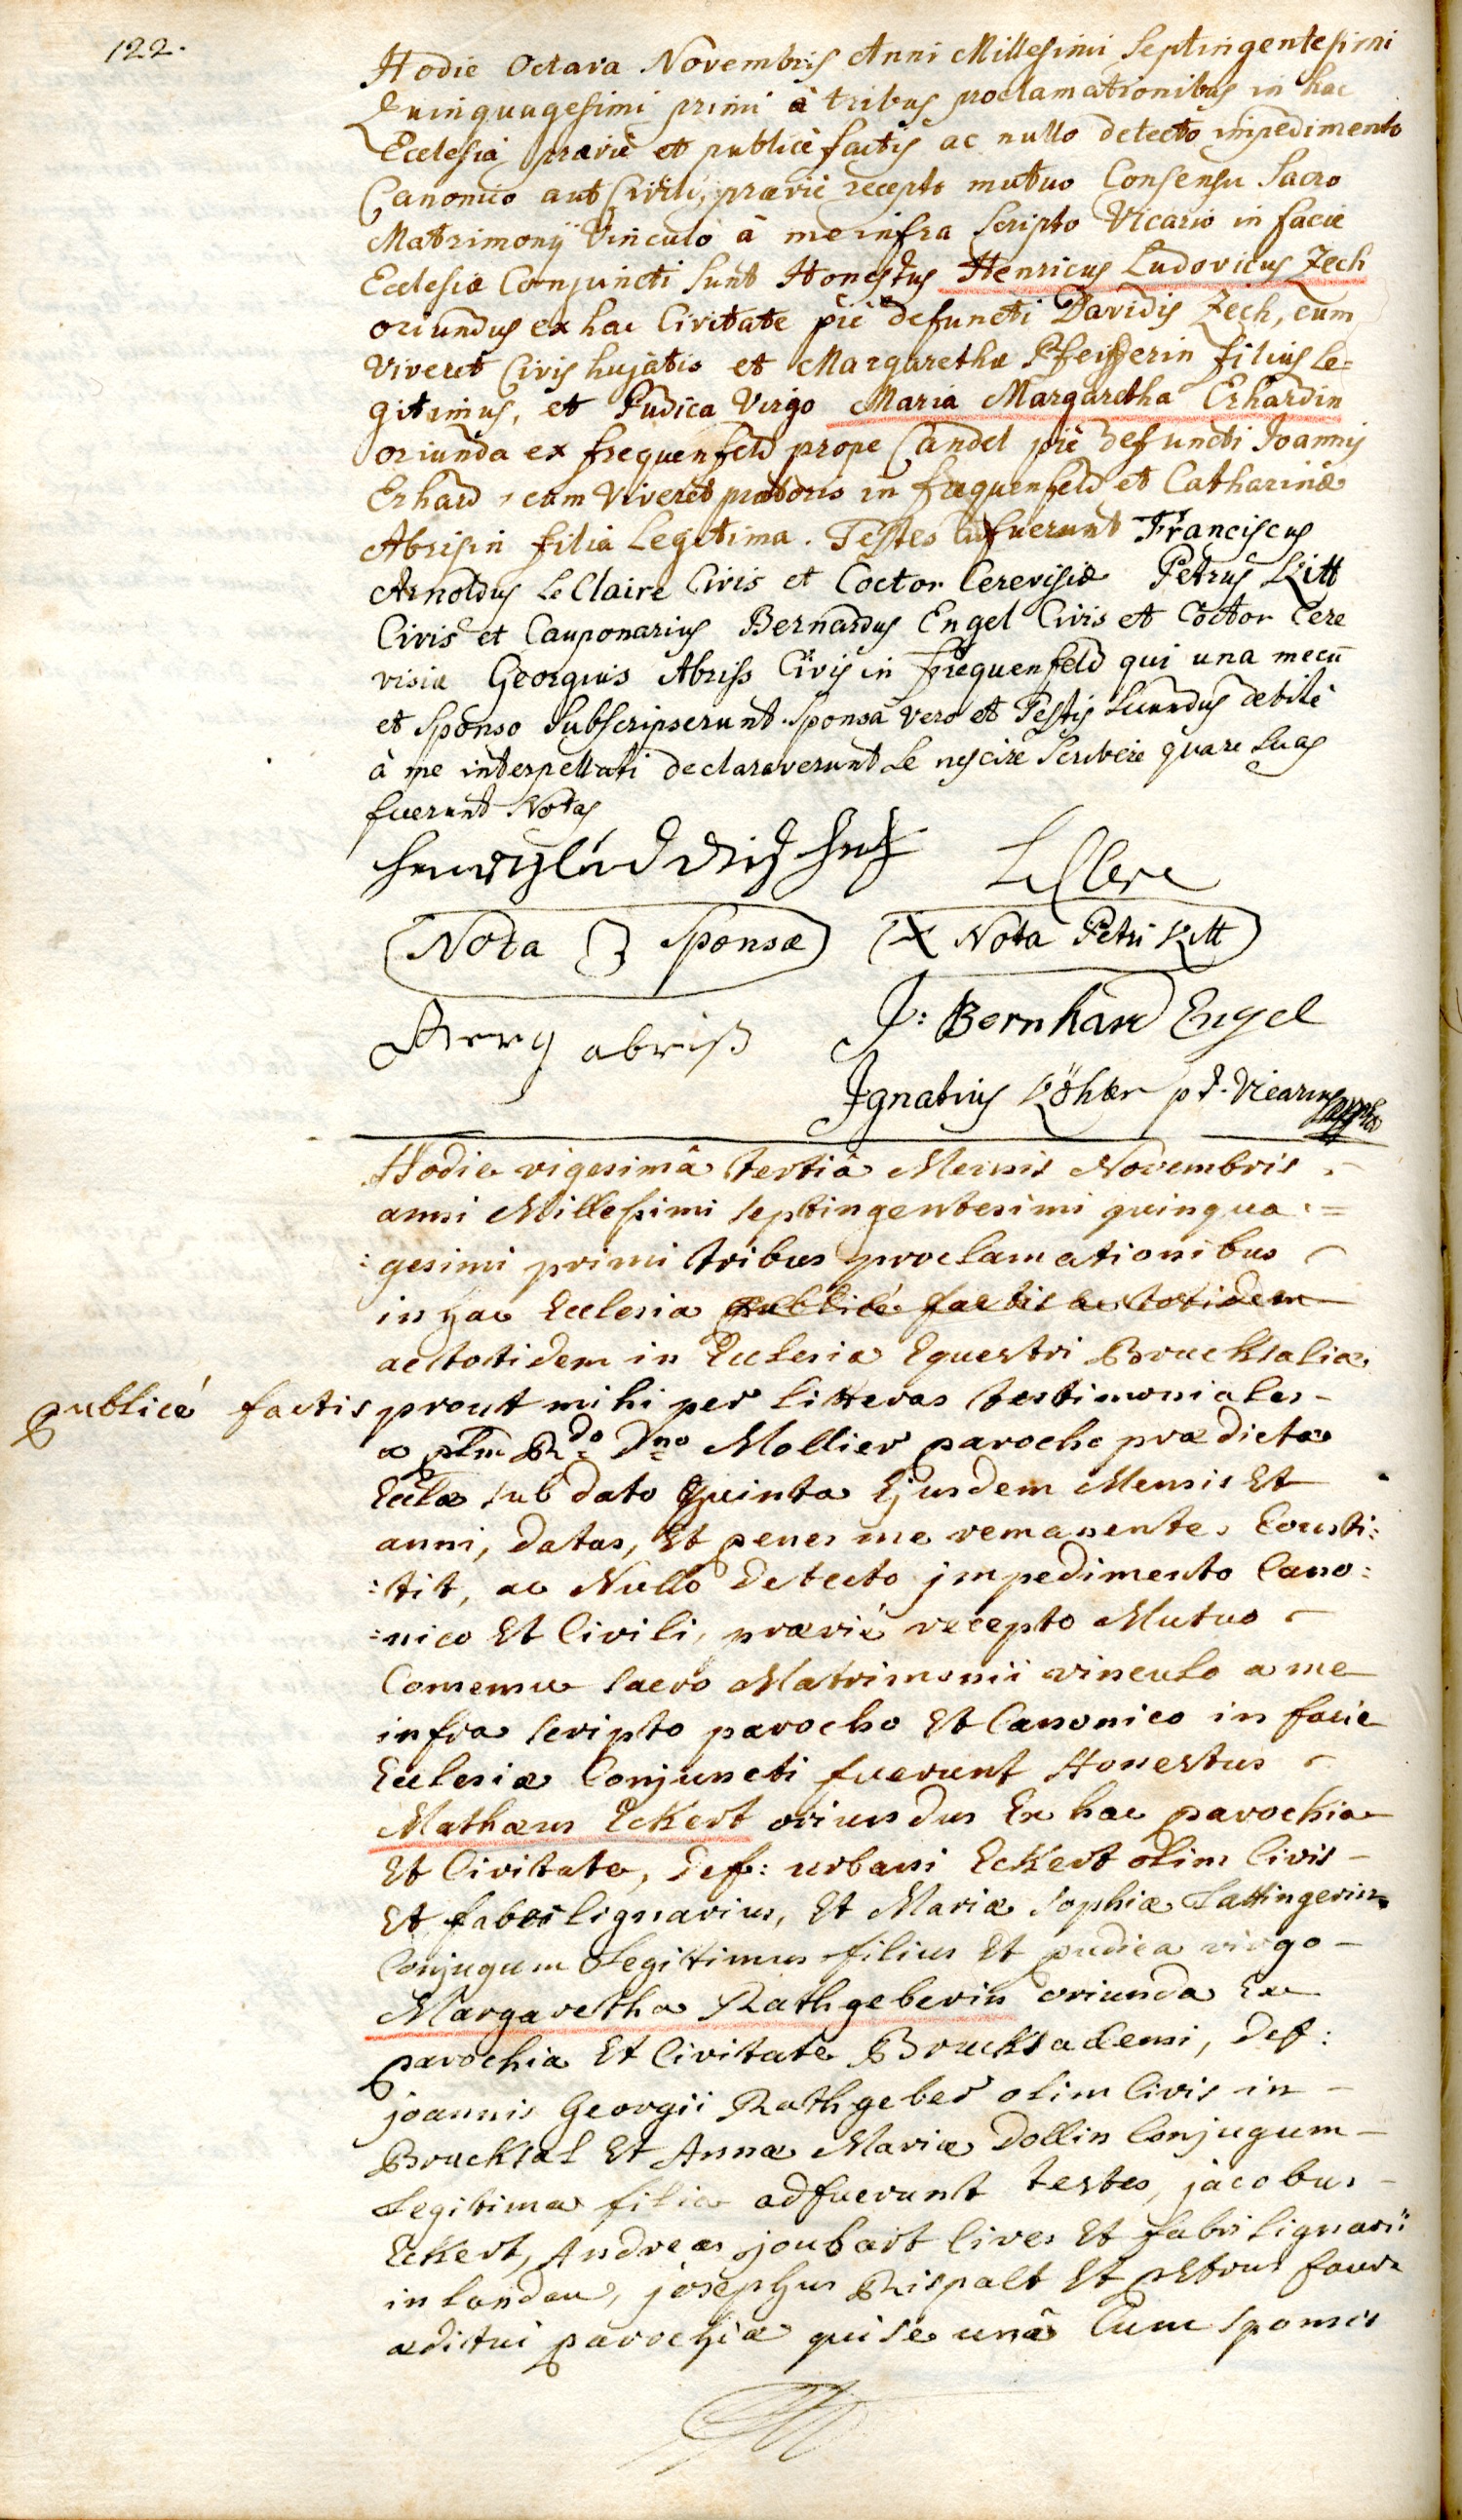 122.
Hodie Octava Novembris Anni Millesimi Septingentesimi
Quinquagesimi primi à tribus proclamationibus in hac
Ecclesia praeviè et publicè factis ac nullo detecto impedimento
Canonico aut Civili, praeviè recepto mutuo Consensu Sacro
Matrimonÿ Vinculo à me infra Scripto Vicario in facie
Ecclesiae Conjuncti Sunt Honestus Henricus Ludovicus Zech
oriundus ex hac Civitate piè defuncti Davidis Zech, cum
Viveret Civis hujatis et Margarethae Pfeifferin filius Le-
gitimus, et Pudica Virgo Maria Margaretha Erhardin
oriunda ex frequenfeld prope Candel piè defuncti Joannis
Erhard, cum Viveret praetoris in frequenfeld et Catharinae
Abrisin filia Legitima. Testes adfuerunt Franciscus
Arnoldus LeClaire Civis et Coctor Cerevisiae Petrus Litt
Civis et Cauponarius Bernardus Engel Civis et Coctor Cere
visiae Georgius Abriss Civis in frequenfeld qui una mecū
et Sponso Subscripserunt Sponsa vero et Testis Secundus debitè
à me interpellati declaraverunt Se nescire Scribere quare Suas
fuerunt Notas
Nota 3 Sponsae X Nota Petri Litt
abriß J: Bernhard Engel
Ignatius Köhler p.t. Vicarius
Hodie vigesimâ tertiâ Mensis Novembris
anni Millesimi septingentesimi quinqua =
: gesimi primi tribus proclamationibus
in hac Ecclesia publicé factis ac totidem
ac totidem in Ecclesia Equestri Brucksaliae
publicé factis prout mihi per litteras testimoniales -
a plm Rdo Dno Mollier parocho praedictae
Eccłae sub dato Quinta Ejusdem Mensis Et
anni, datas, Et penes me remanentes Consti:
:tit, ac Nullo detecto jmpedimento Cano:
:nico Et Civili, praevié recepto Mutuo
Consensu sacro Matrimonii vinculo a me
infra scripto parocho Et Canonico in facie
Ecclesiae Conjuncti fuerunt Honestus
Mathaeus Eckert oriundus Ex hac parochia
Et Civitate, def: urbani Eckert olim Civis -
Et fabri lignarius, Et Mariae Sophiae Lattingerin
Conjugum Legitimus filius Et pudica virgo -
Margaretha Rathgeberin oriunda Ex
parochia Et Civitate Brucksadensi, def:
joannis Georgii Rathgeber olim Civis in -
Brucksal Et Annae Mariae Dollin Conjugum -
Legitima filia adfuerunt testes, jacobus -
Eckert, Andreas joubart Cives Et fabri lignarii
in landau, josephus Rispalt Et petrus faur
aeditui parochiae qui se unâ Cum sponsis